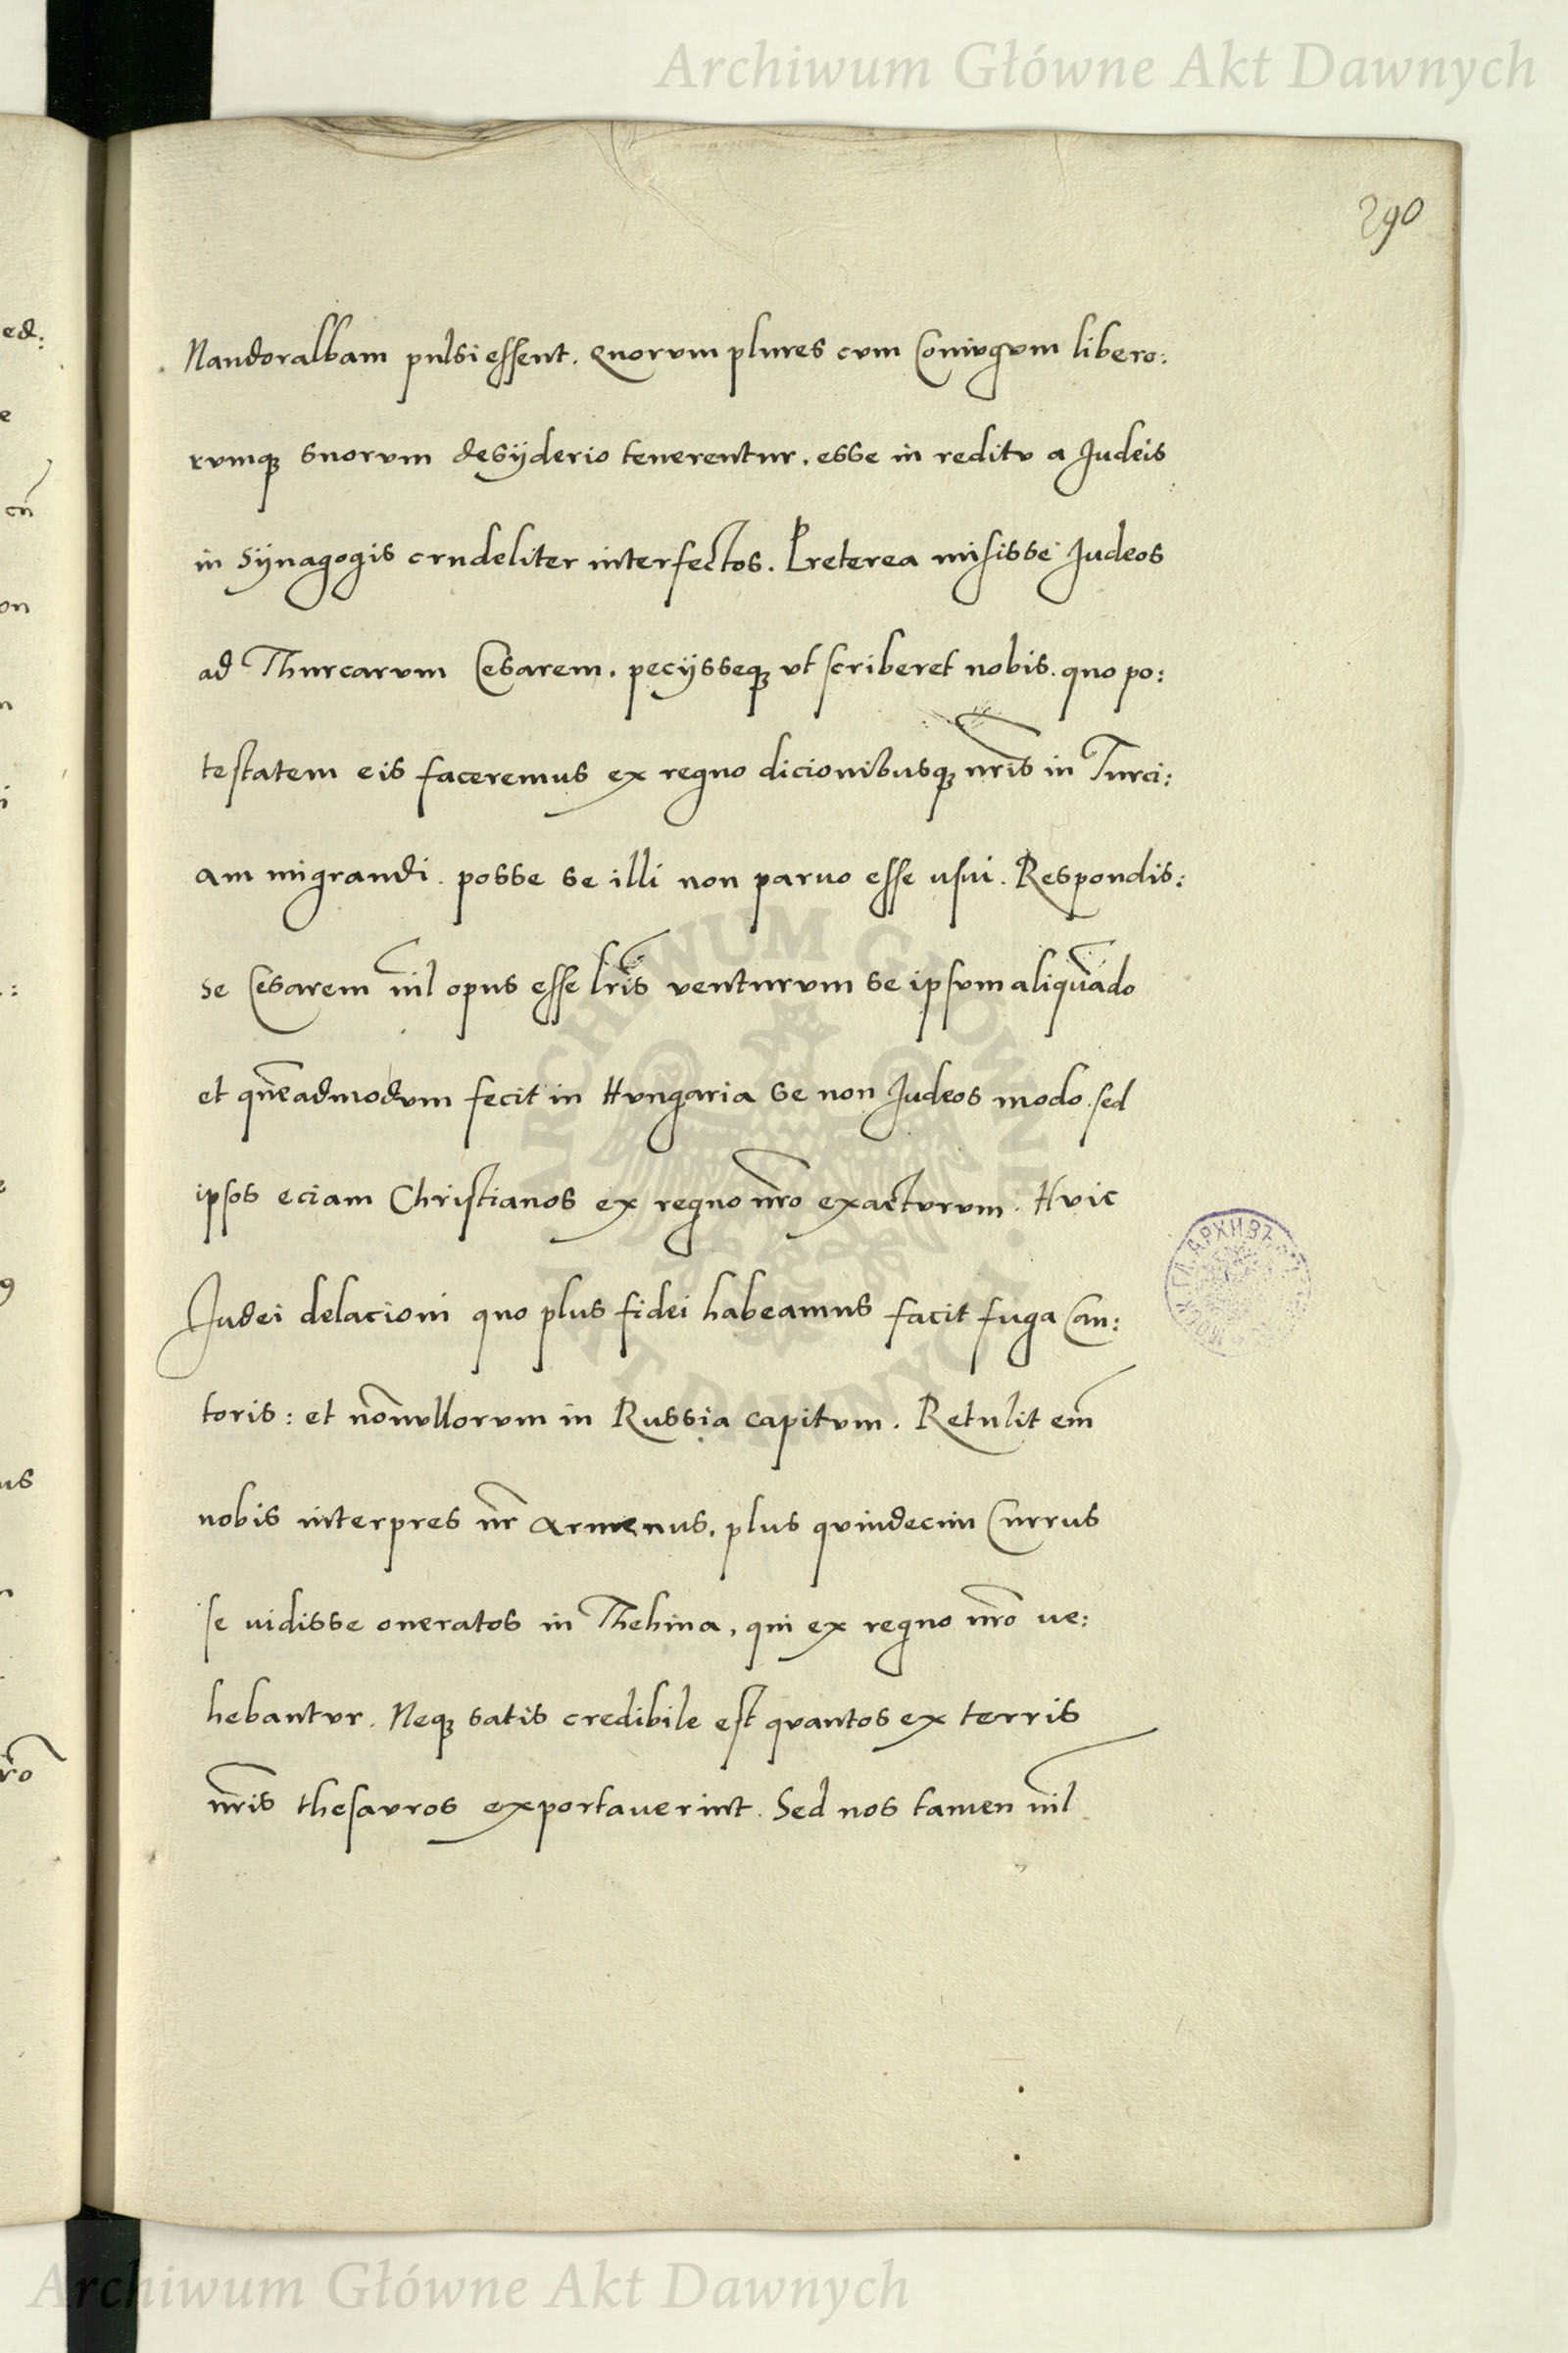 Archiwum Główne Akt Dawnych
290
Nandoralbam pulsi essent. Quorum plures cum Coniugum libero:
rumq; suorum desyderio tenerentur, esse in reditu a Judeis
in Synagogis crudeliter interfectos. Preterea misisse Judeos
ad Thurcarum Cesarem, pecijsseq; ut scriberet nobis. quo po:
testatem eis faceremus ex regno dicionibusq; nr̃is in Turci:
am migrandi. posse se illi non paruo esse usui. Respondis:
se Cesarem nil̃ opus esse lr̃is venturum se ipsum aliquãdo
et quẽadmodum fecit in Hungaria se non Judeos modo. sed
ipsos eciam Christianos ex regno nr̃o exacturum. Huic
Judei delacioni quo plus fidei habeamus facit fuga Can:
toris: et nõnullorum in Russia capitum. Retulit em̃
nobis interpres nr̃ Armenus, plus quindecim Currus
se vidisse oneratos in Thehina, qui ex regno nr̃o ue:
hebantur. Neq; satis credibile est quantos ex terris
nr̃is thesauros exportauerint. Sed nos tamen nil̃
Archiwum Główne Akt Dawnych